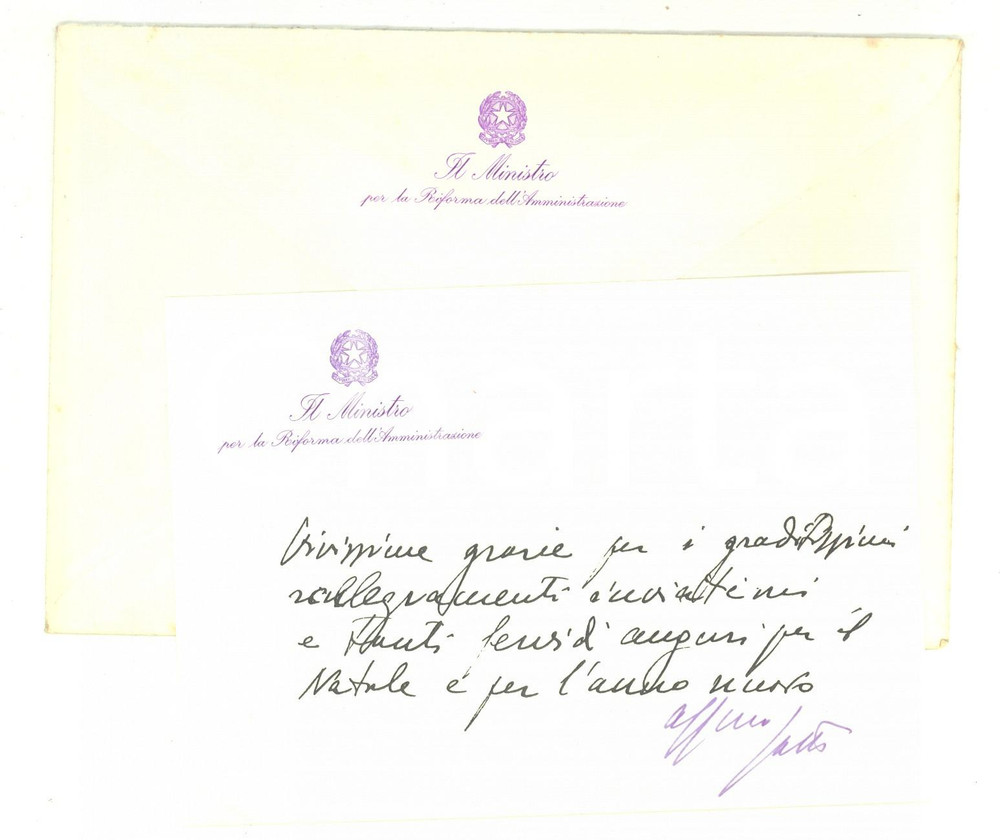 Il Ministro
per la Riforma dell'Amministrazione
Il Ministro
per la Riforma dell'Amministrazione
Vivissime grazie per i graditissimi
rallegramenti inviatimi
e tanti fervidi auguri per il
Natale e per l'anno nuovo
aff.mo